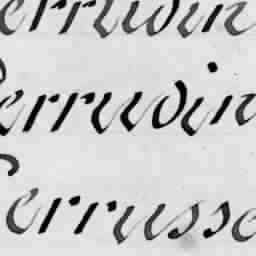 errudin
Perrudin
Perrusse